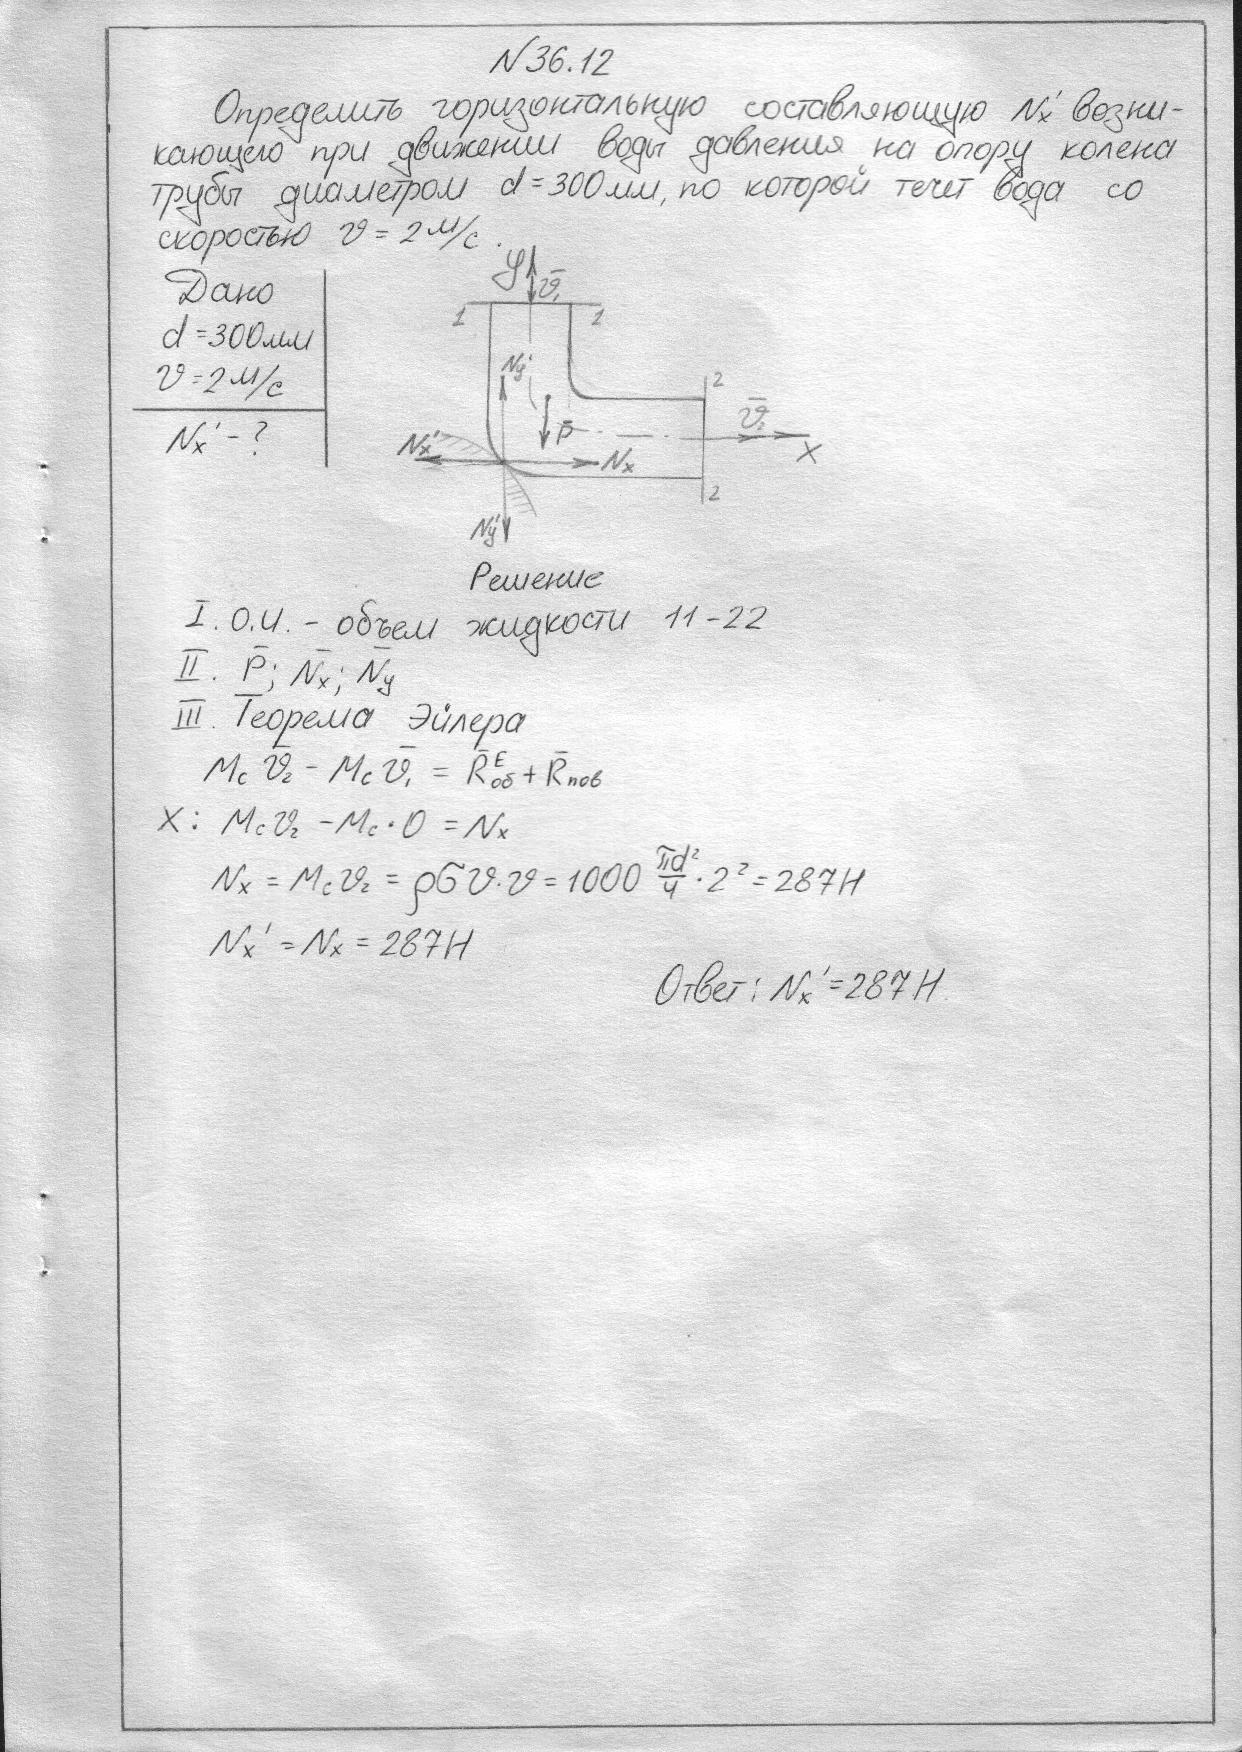 N36.12
Определить горизонтальную составляющую Nx' возни-
кающего при движении воды давления на опору колена
трубы диаметром d=300мм, по которой течет вода со
скоростью υ = 2 м/с.
Дано
d=300мм
υ=2м/с
Nx' - ?
y
υ̅₁
1
1
Ny'
2
υ̅₂
P̅
Nx'
Nx
x
2
Ny'
Решение
I. О.И. - объем жидкости 11-22
II. P̅; N̅x; N̅y
III. Теорема Эйлера
Mc υ̅₂ - Mc υ̅₁ = R̅об^E + R̅пов
X: Mc υ₂ - Mc · 0 = Nx
Nx = Mc υ₂ = ρσυ·υ = 1000 πd²/4 · 2² = 287Н
Nx' = Nx = 287Н
Ответ: Nx' = 287Н.